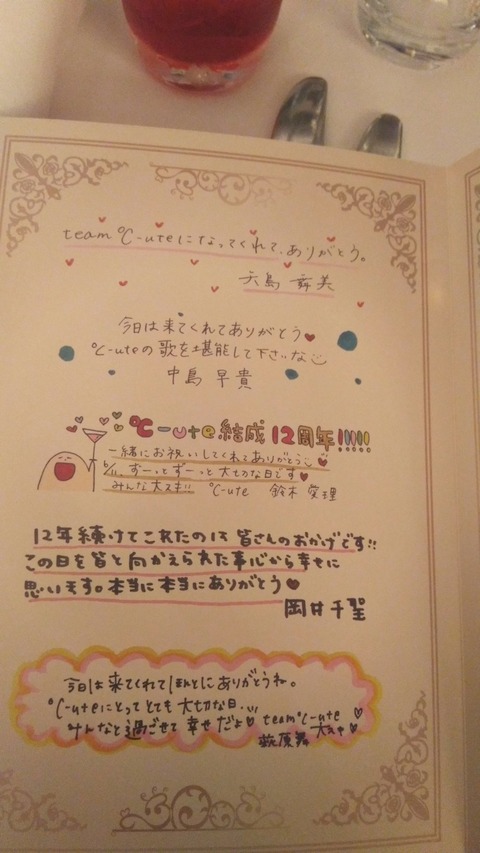 team ℃-uteになってくれて、ありがとう。
矢島 舞美
今日は来てくれてありがとう♥
℃-uteの歌を堪能して下さいな
中島 早貴
℃-ute結成12周年!!!!!
一緒にお祝いしてくれてありがとう
6/11 ずーっとずーっと大切な日です♥
みんな大スキ!! ℃-ute 鈴木 愛理
12年続けてこれたのは皆さんのおかげです!!
この日を皆と向かえられた事心から幸せに
思います。本当に本当にありがとう♥
岡井千聖
今日は来てくれてほんとにありがとうね。
℃-uteにとってとても大切な日。
みんなと過ごせて幸せだよ♥ team℃-ute
萩原舞